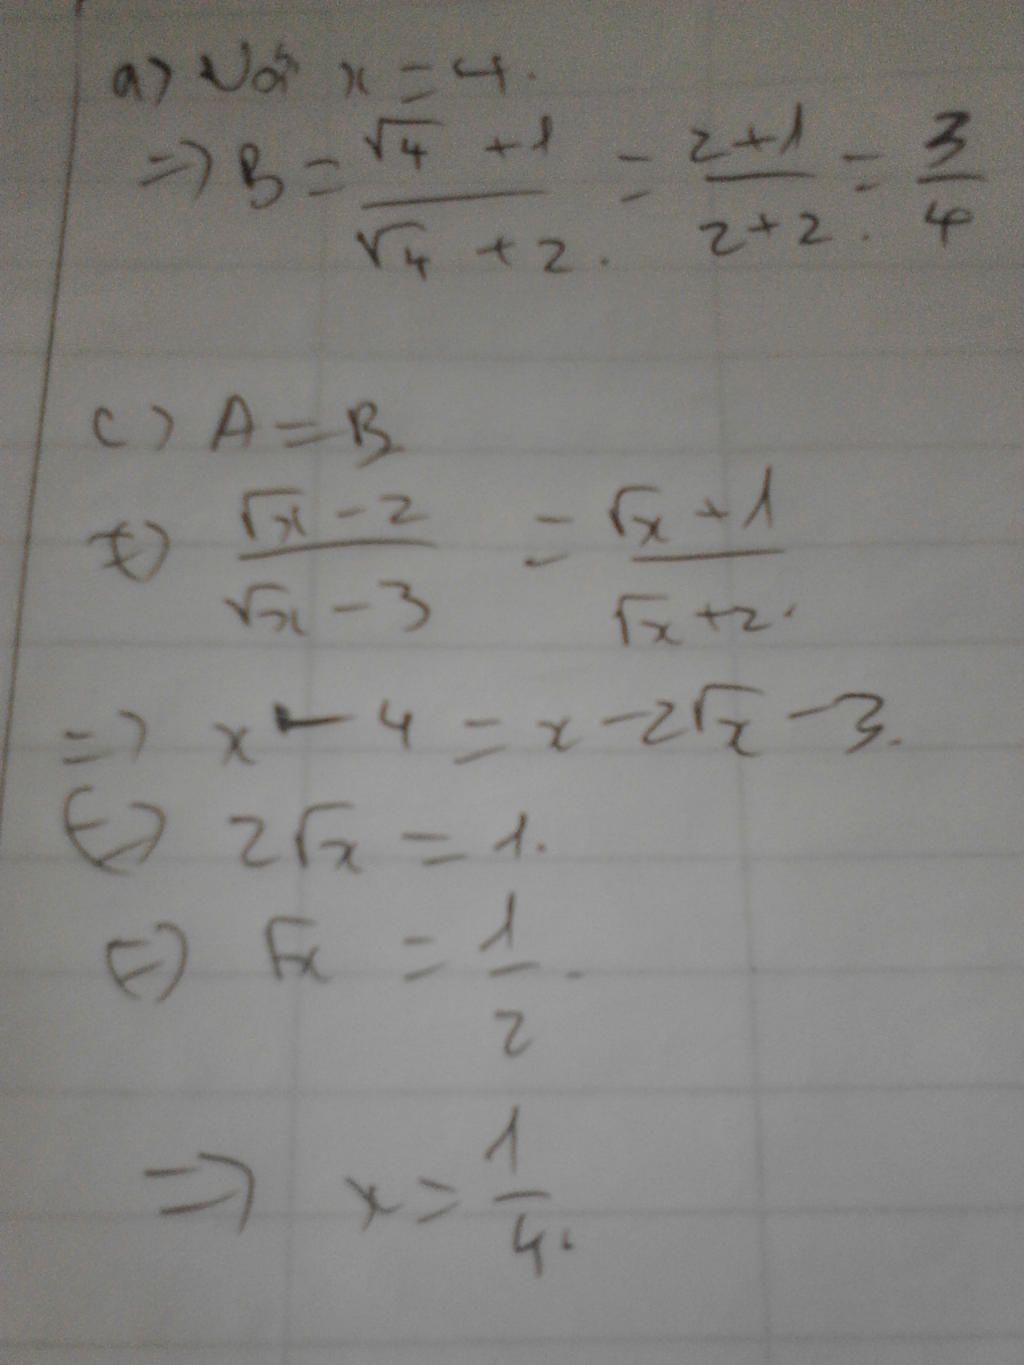 a) Với x = 4.
=> B = (√4 + 1)/(√4 + 2.) = (2+1)/(2+2.) = 3/4
c) A = B
<=> (√x - 2)/(√x - 3) = (√x + 1)/(√x + 2.)
=> x - 4 = x - 2√x - 3.
<=> 2√x = 1.
<=> √x = 1/2.
=> x = 1/4.